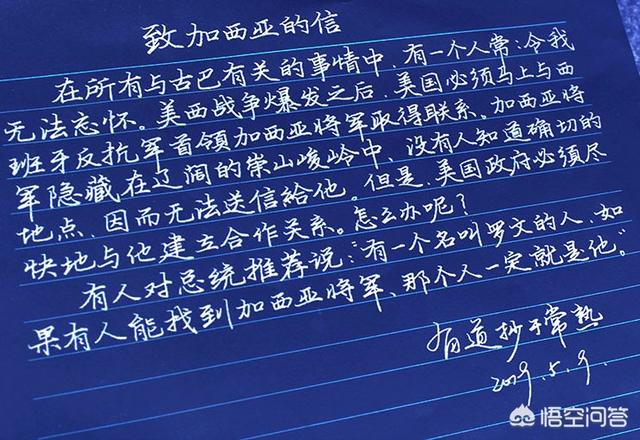 致加西亚的信
在所有与古巴有关的事情中，有一个人常令我
无法忘怀。美西战争爆发之后，美国必须马上与西
班牙反抗军首領加西亚将军取得联系。加西亚将
军隐藏在辽阔的崇山峻岭中，没有人知道确切的
地点，因而无法送信給他。但是，美国政府必须尽
快地与他建立合作关系。怎么办呢？
有人对总统推荐说：“有一个名叫罗文的人，如
果有人能找到加西亚将军，那个人一定就是他。”
有道抄于常熟
2019.5.9.
悟空问答